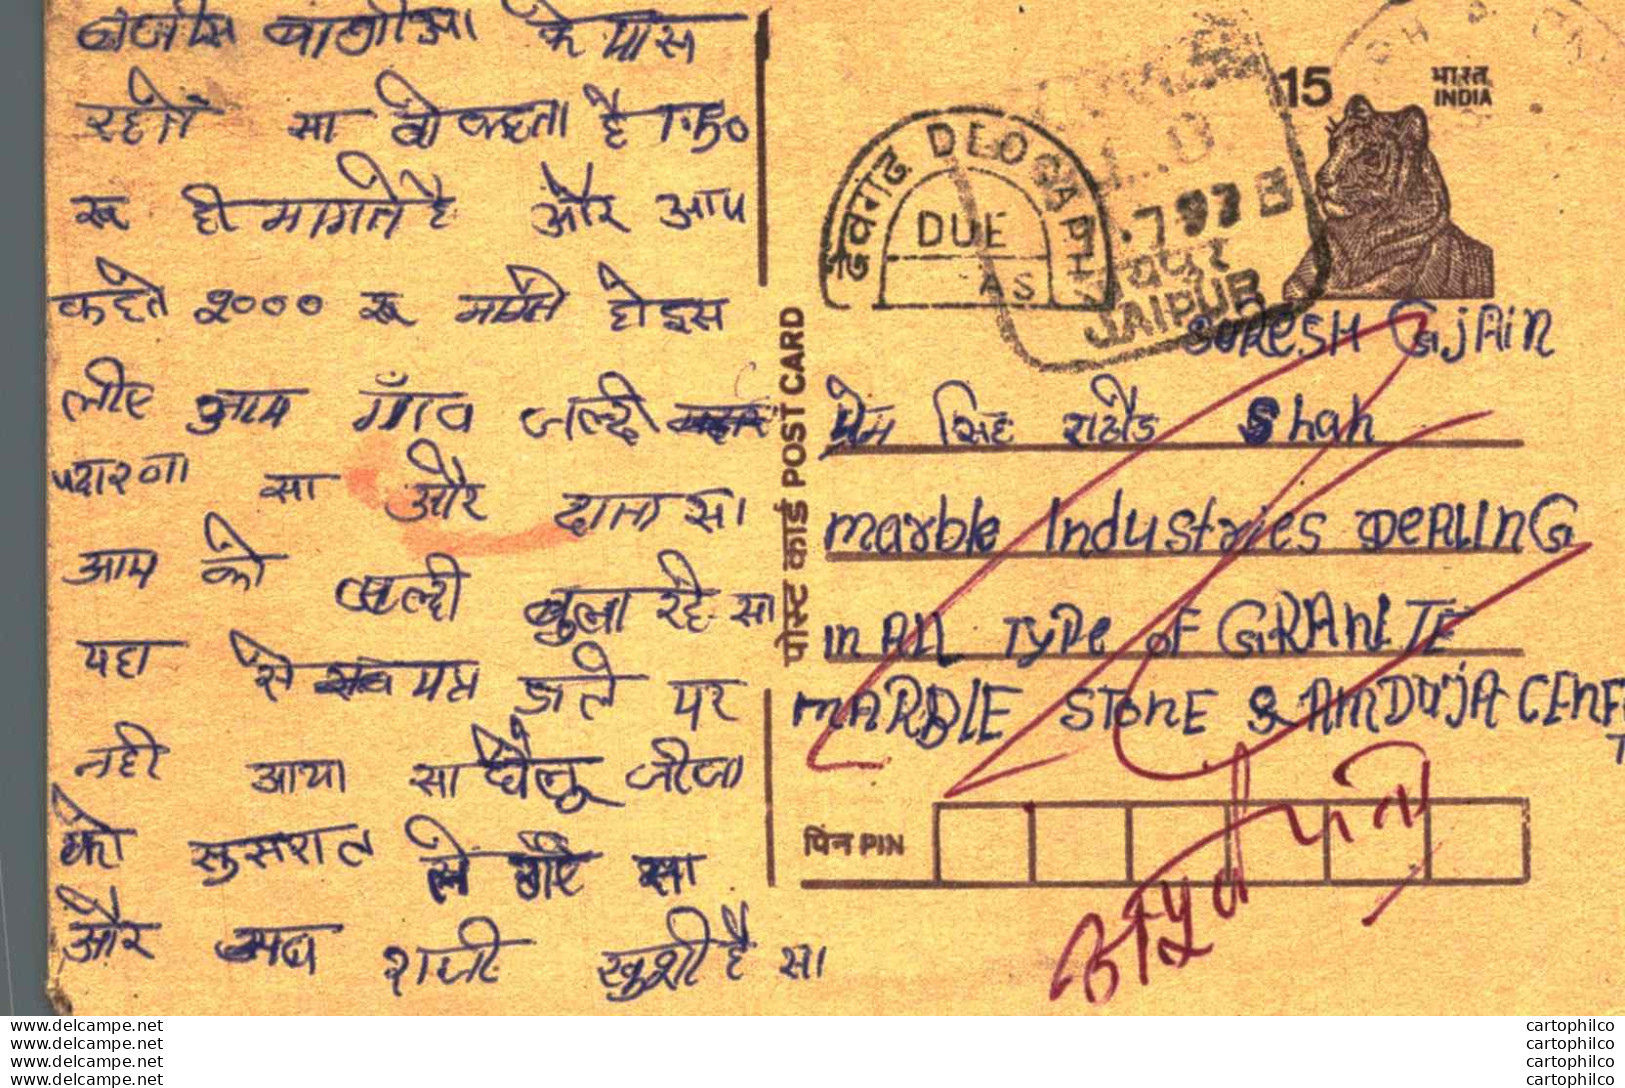 के पास
रहेते सा वो कहता है 1.50
रू ही मागते है और आप
कहेते २००० रू मागते हो इस
लीए आप गाँव जल्दी
पदारणा सा और दाता सा
आप को जल्दी बुला रहे सा
यहा से सब पत्र डाले पर
नही आया सा घेलू जीजा
को सुसराल ले गऐ सा
और अब राजी खुशी है सा
15
भारत
INDIA
देवगढ DEOGARH
DUE
AS
.797 B
जयपुर
JAIPUR
पोस्ट कार्ड POST CARD
SURESH G JAIN
प्रेम सिह राठौड Shah
marble Industries DEALING
in ALL Type of GRANITE
MARBLE STONE & AMDUJA CENE
T
पिन PIN
अपूर्ण पता
www.delcampe.net
www.delcampe.net
www.delcampe.net
www.delcampe.net
cartophilco
cartophilco
cartophilco
cartophilco